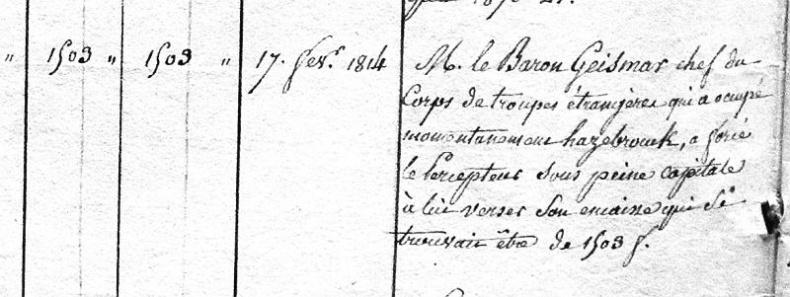 " 1503 " 1503 " 17. fevr. 1814 M. le Baron Geismar chef du
Corps de troupes étrangères qui a ocupé
momentanement hazebrouck, a forcé
le Percepteur sous peine capitale
à lui verser son encaisse qui se
trouvait être de 1503 f.